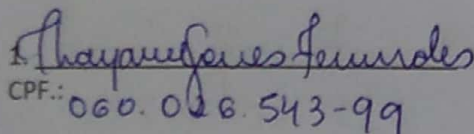 1. Thayane Gomes Fernandes
CPF.: 060.026.543-99